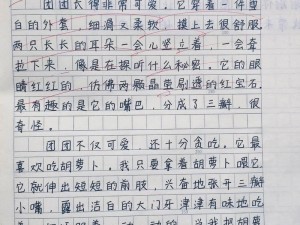 团团长得非常可爱。它穿着一件雪
白的外套，细滑又柔软，摸上去很舒服。
两只长长的耳朵一会心竖立着，一会耷
拉下来，像是在探听什么秘密。它的眼
睛红红的，仿佛两颗晶莹剔透的红宝石，
最有趣的是它的嘴巴，分成了三瓣，很
奇怪。
团团不仅可爱，还十分贪吃。它最
喜欢吃胡萝卜。我只要拿着胡萝卜喂它
它就伸出短短的前肢，兴奋地张开三瓣
小嘴，露出洁白的大门牙津津有味地吃